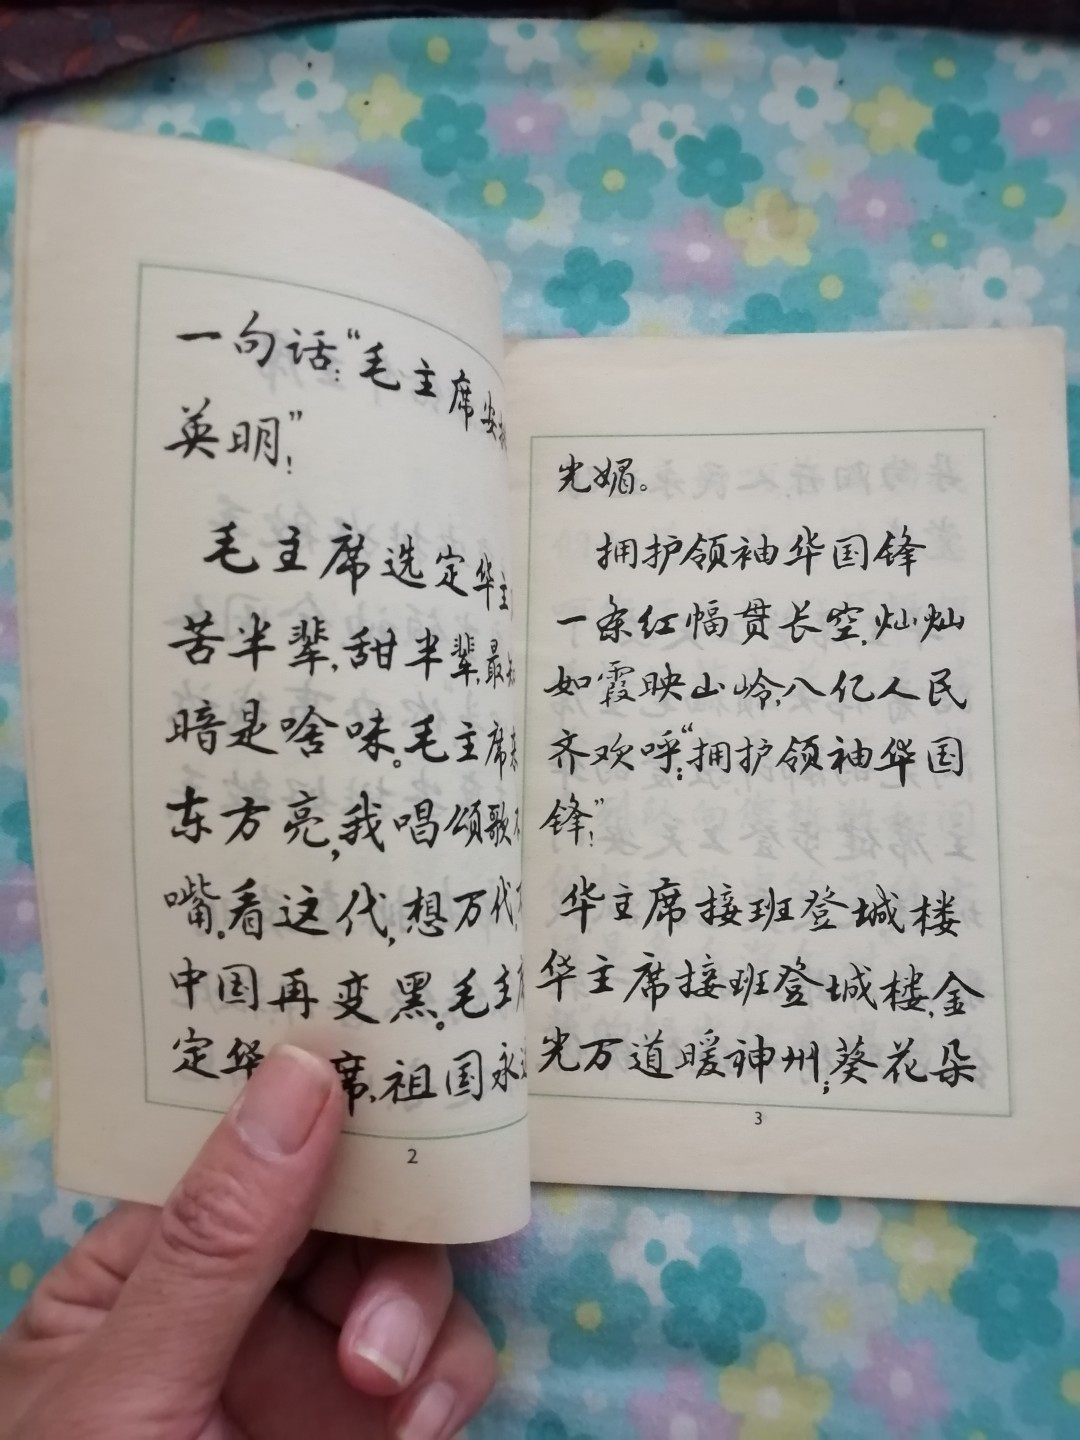 一句话:“毛主席安
英明!”
毛主席选定华主
苦半辈,甜半辈,最知
暗是啥味。毛主席来
东方亮,我唱颂歌
嘴。看这代,想万代,
中国再变黑。毛主席
定华 席,祖国永
2
光媚。
拥护领袖华国锋
一条红幅贯长空,灿灿
如霞映山岭,八亿人民
齐欢呼:“拥护领袖华国
锋!”
华主席接班登城楼
华主席接班登城楼,金
光万道暖神州;葵花朵
3